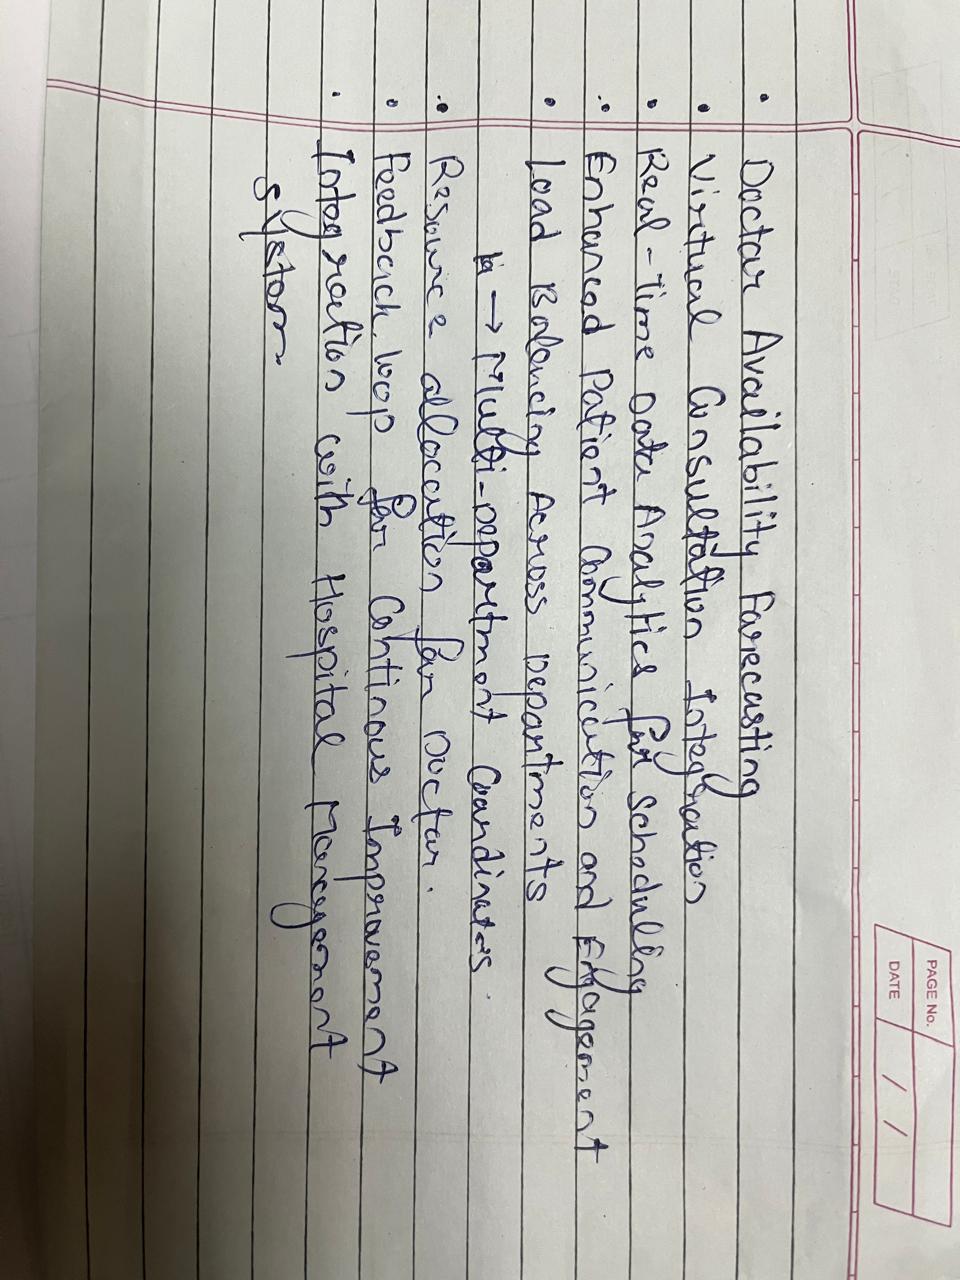 PAGE No.
DATE / /
• Doctor Availability Forecasting
• Virtual Consultation Integration
• Real-Time Data Analytics for Scheduling
• Enhanced Patient Communication and Engagement
• Load Balancing Across Departments
→ Multi-Department Coordinators.
• Resource allocation for Doctor.
• Feedback loop for Continous Improvement
• Integration with Hospital Management
System.